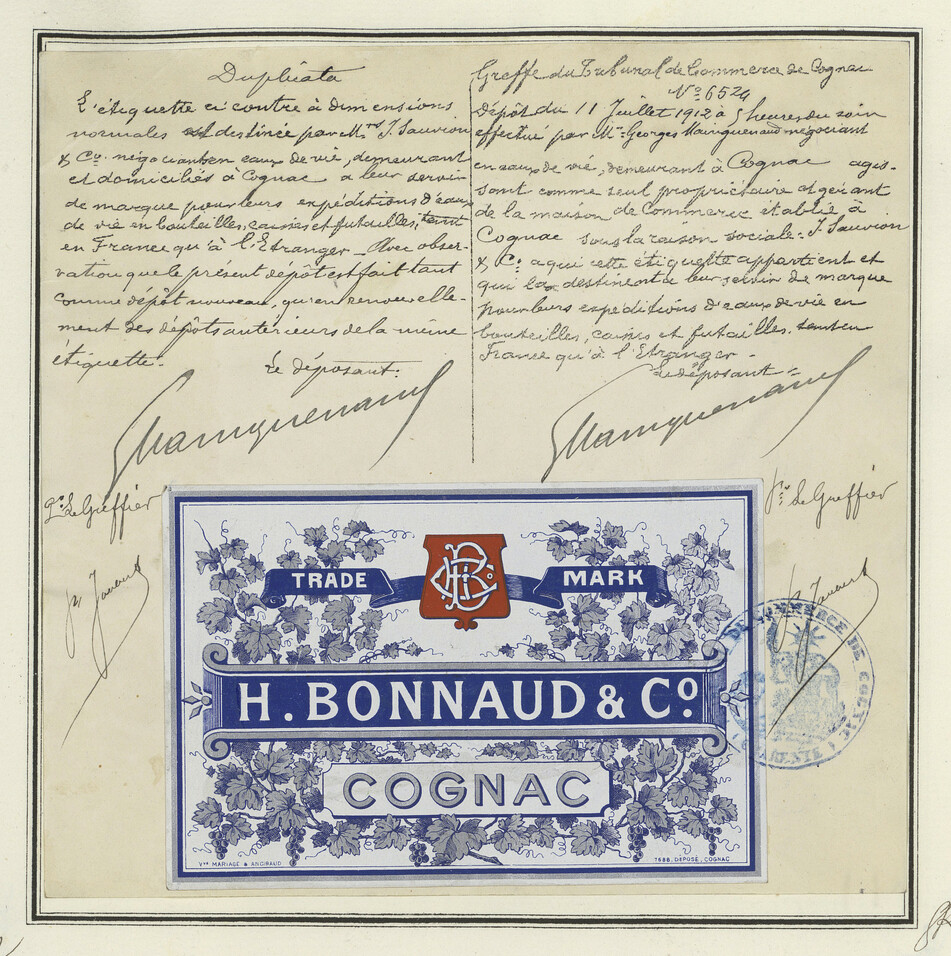 Duplicata
L'étiquette ci contre à dimensions
normales est destinée par Mrs J. Sauvion
& Co. négociants en eaux de vie, demeurant
et domiciliés à Cognac a leur servir
de marque pour leurs expéditions d'eaux
de vie en bouteilles, caisses et futailles, tant
en France qu'à l'Etranger - Avec obser-
vation que le présent dépôt est fait tant
comme dépôt nouveau, qu'en renouvelle-
ment des dépôts antérieurs de la même
étiquette.
Le déposant:
GMainguenaud
Pr. Le Greffier
Greffe du Tribunal de Commerce de Cognac
No 6524
Dépôt du 11 Juillet 1912 à 5 heures du soir
effectué par Mr. Georges Mainguenaud négociant
en eaux de vie, demeurant à Cognac agis-
sant comme seul propriétaire et gérant
de la maison de Commerce établie à
Cognac sous la raison sociale: J. Sauvion
& Co. a qui cette étiquette appartient et
qui la destinent a leur servir de marque
pour leurs expéditions d'eaux de vie en
bouteilles, caisses et futailles tant en
France qu'à l'Etranger -
Le déposant =
GMainguenaud
Pr. Le Greffier
TRADE HBCo MARK
H. BONNAUD & Co.
COGNAC
Vve MARIAGE & ANDIBAUD
7688, DÉPOSÉ, COGNAC
DE COMMERCE DE COGNAC